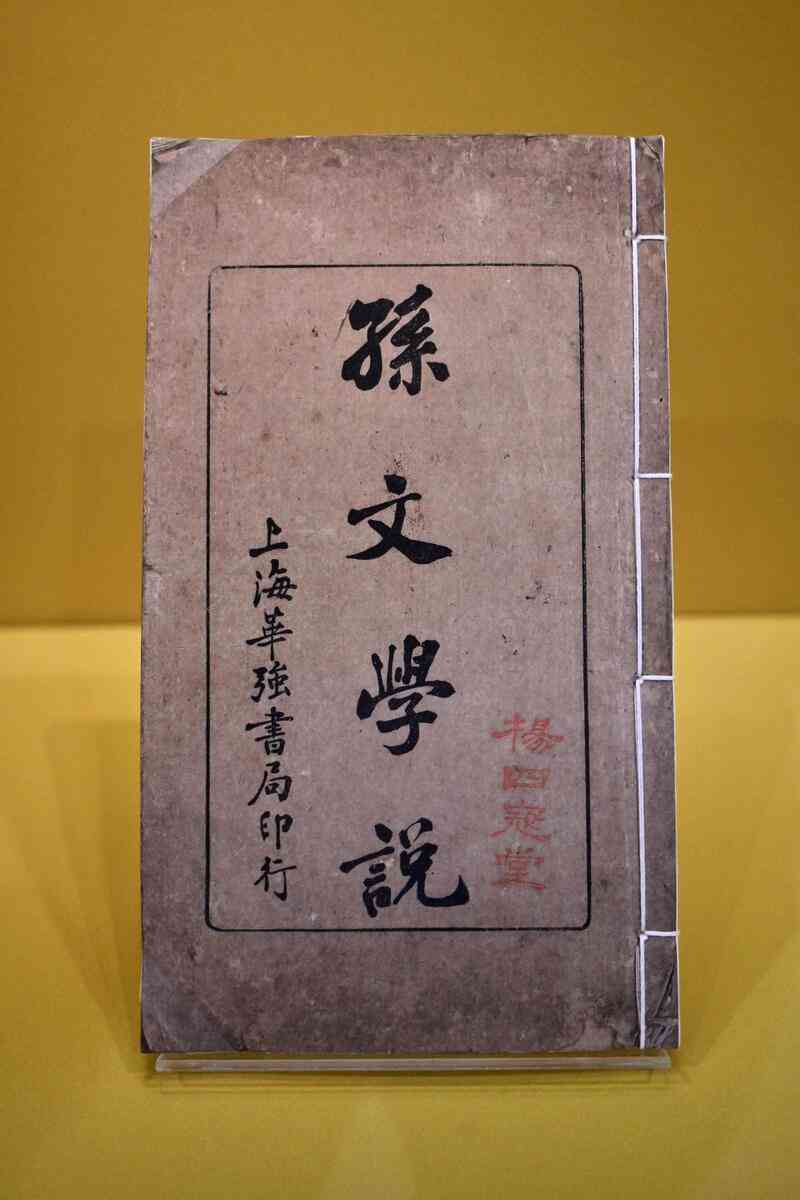 楊四寇堂
孫文學説
上海華強書局印行